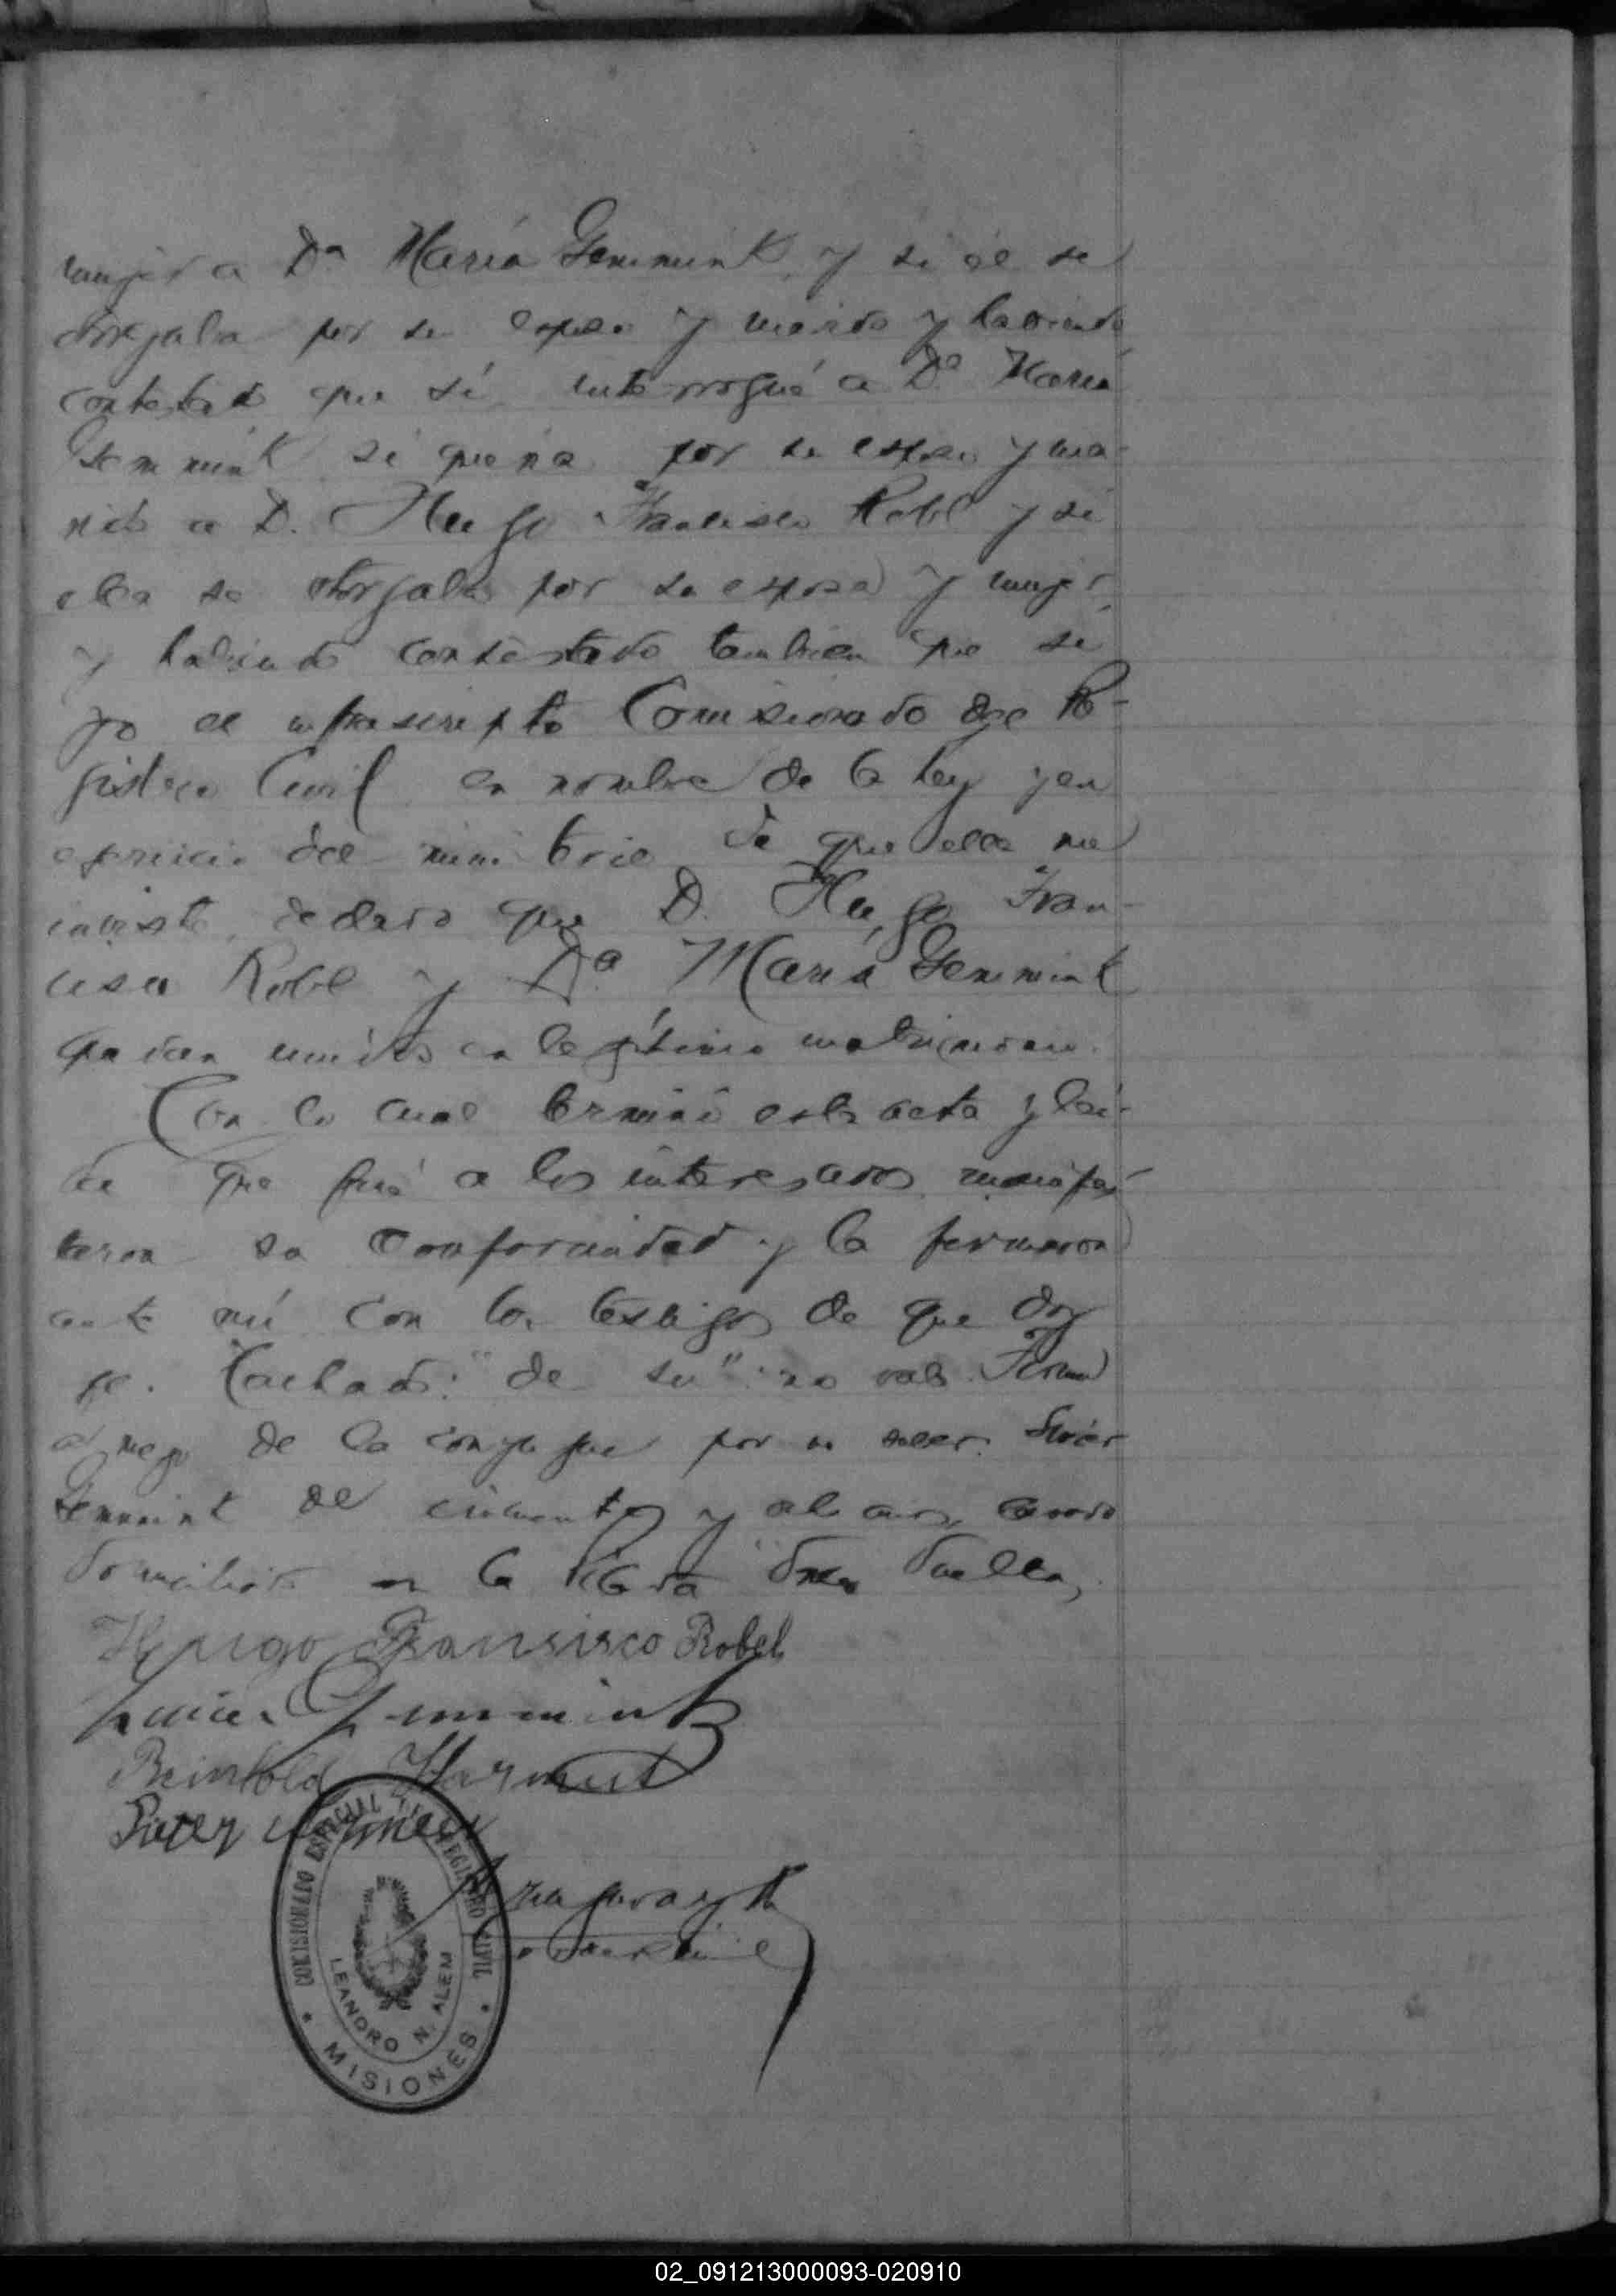 mujer a Dª María Gemmink y si él se
otorgaba por su esposo y marido y habiendo
contestado que sí interrogué a Dª María
Gemmink si quería por su esposo y ma-
rido a D. Hugo Francisco Robel y si
ella se otorgaba por su esposa y mujer,
y habiendo contestado tambien que sí
yo el infrascripto Comisionado del Re-
gistro Civil en nombre de la ley y en
ejercicio del ministerio de que ella me
inviste, declaro que D. Hugo Fran-
cisco Robel y Dª María Gemmink
quedan unidos en legítimo matrimonio.
Con lo cual terminó esta acta y leí-
da que fué a los interesados manifes-
taron su conformidad y la firmaron
ante mí con los testigos de que doy
fe. Tachado: "de su" no vale. Firma
a ruego de la conyuge por no saber
Gemmink de cincuenta y años, casado
domiciliado en la
Hugo Fransisco Robel
Gemmink
Reinhold
COMISIONADO ESPECIAL DEL REGISTRO CIVIL
LEANDRO N. ALEM
* MISIONES *
02_091213000093-020910